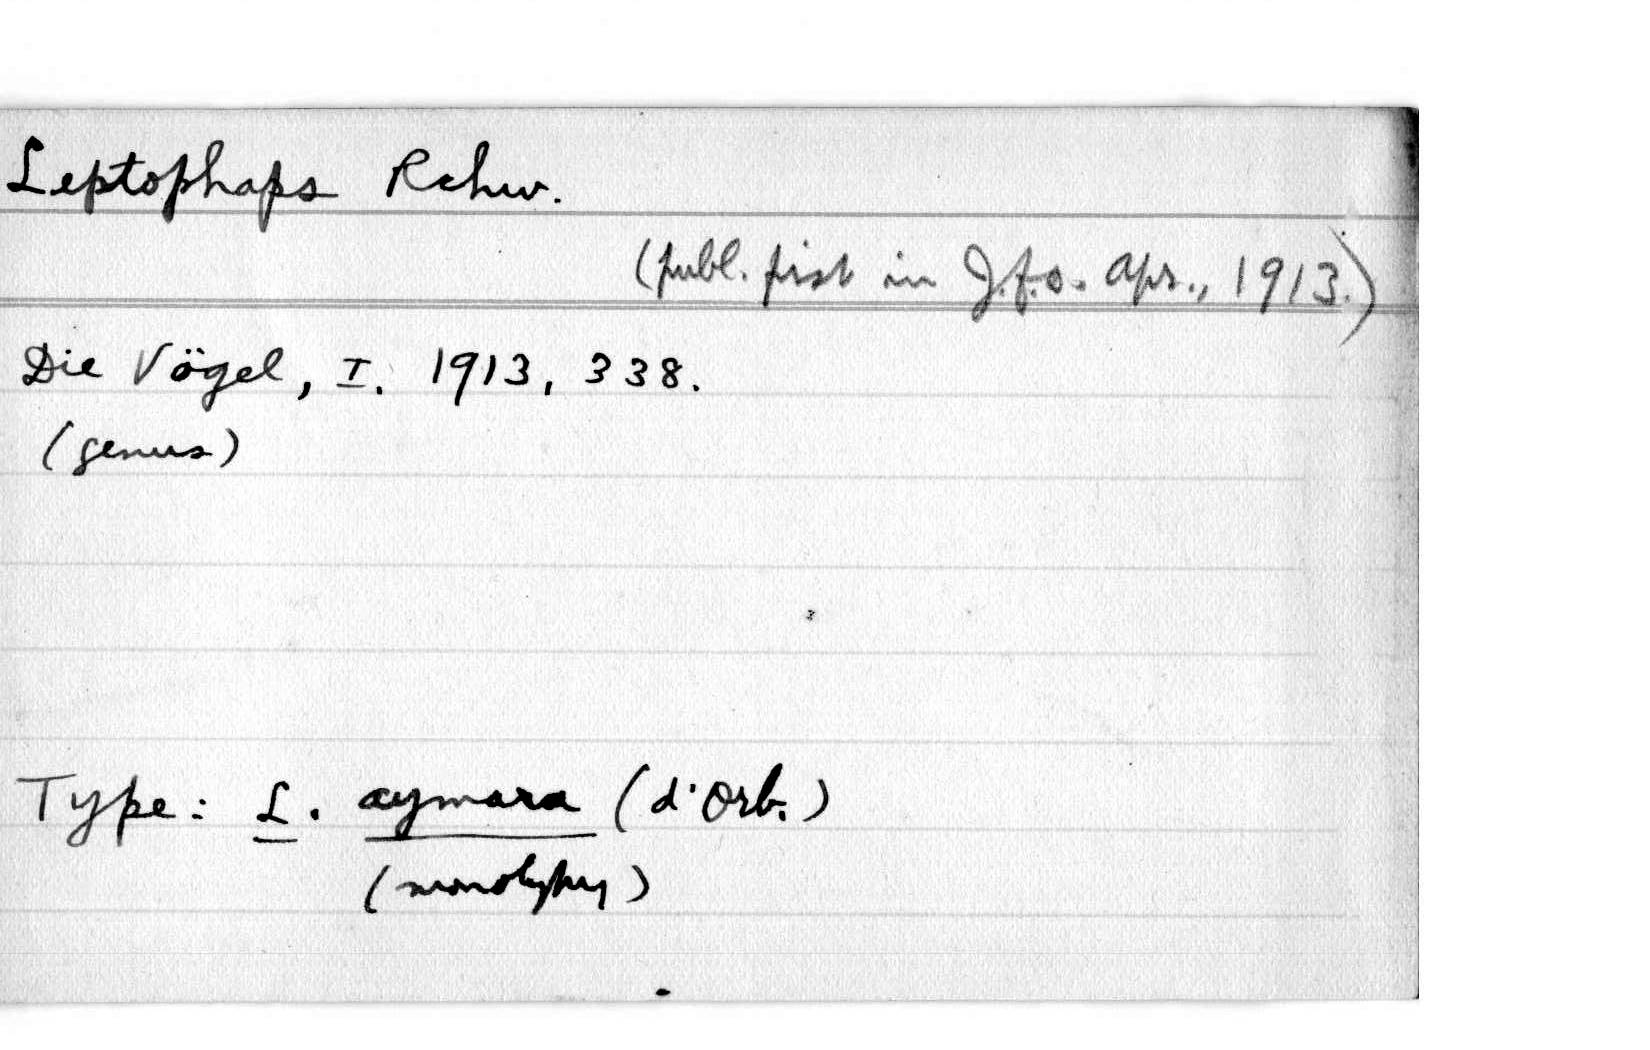 Leptophaps Rchw.
(publ. first in J.f.O. Apr., 1913.)
Die Vögel, I. 1913, 338.
(genus)
Type: L. aymara (d'Orb.)
(monotypy)